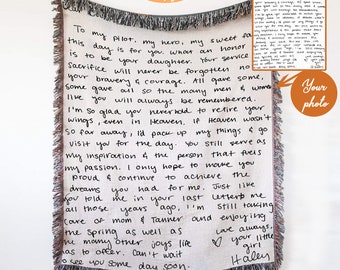 To my pilot, my hero, my sweet
this day is for you. what an honor
is to be your daughter. Your service
sacrifice will never be forgotten no
your bravery & courage. All gave some,
some gave all so the many men & wom
like you will always be remembered.
I'm so glad you never told to retire your
wings, even in Heaven. If Heaven wasn't
so far away, I'd pack up my things & go
visit you for the day. You still serve as
my inspiration & the person that fuels
my passion. I only hope to make you
proud & continue to achieve the
dreams you had for me. Just like
you told me in your last letter to me
all those years ago, I'm still taking
care of mom & Tanner and enjoying
me spring as well as
me many other joys life
as to offer. Can't wait
o see you some day soon.
love always,
your little
girl
Haley
Your
photo